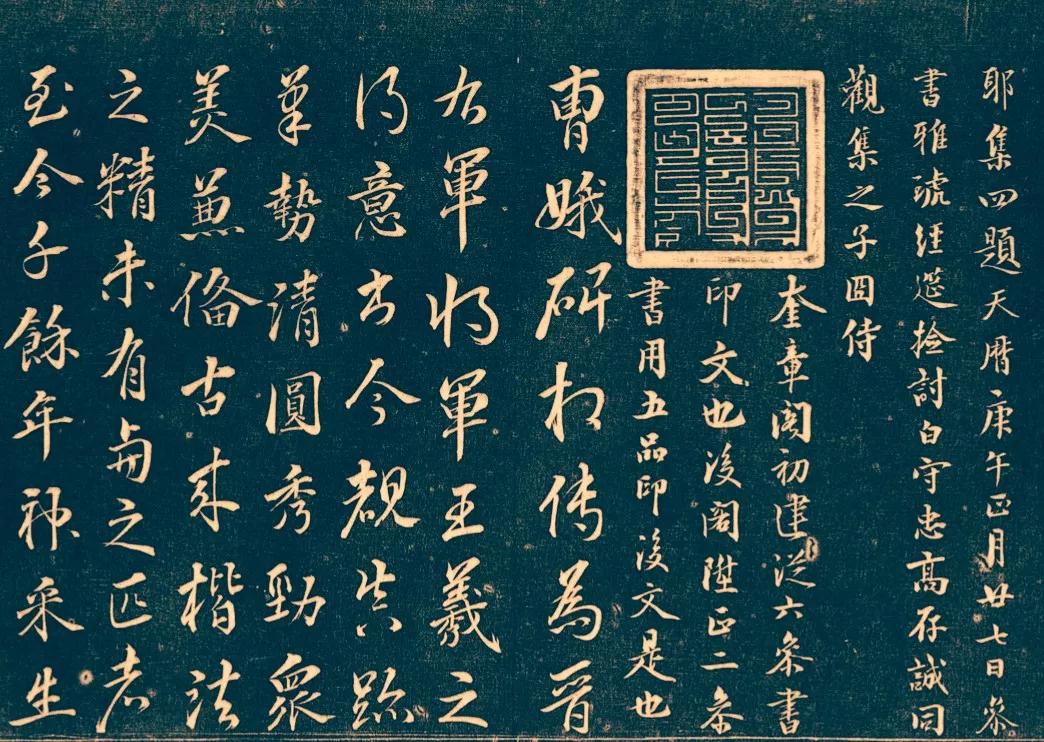 耶集四題天曆庚午正月廿七日叅
書雅琥經筵撿討白守忠高存誠同
觀集之子囙侍
奎章閣初建從六叅書
印文也後閣陞正二叅
書用五品印後文是也
曹娥碑相傳為晉
右軍將軍王羲之
得意書今覩真跡
筆勢清圓秀勁衆
美兼俻古來楷法
之精未有與之匹者
至今千餘年神采生